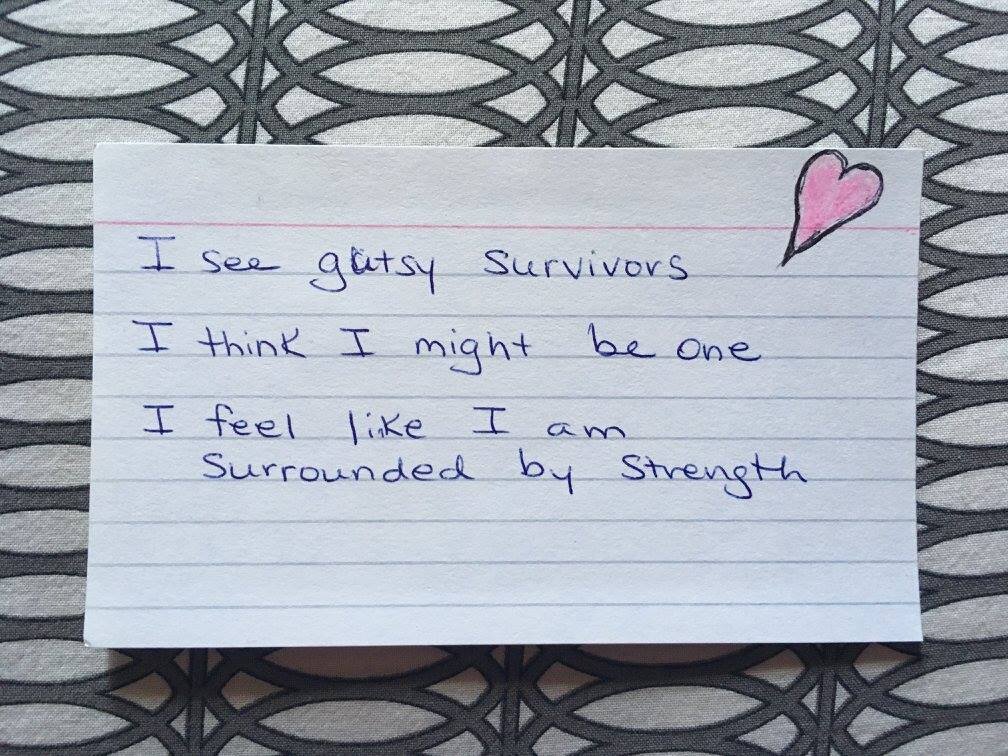 I see gutsy survivors
I think I might be one
I feel like I am
surrounded by strength